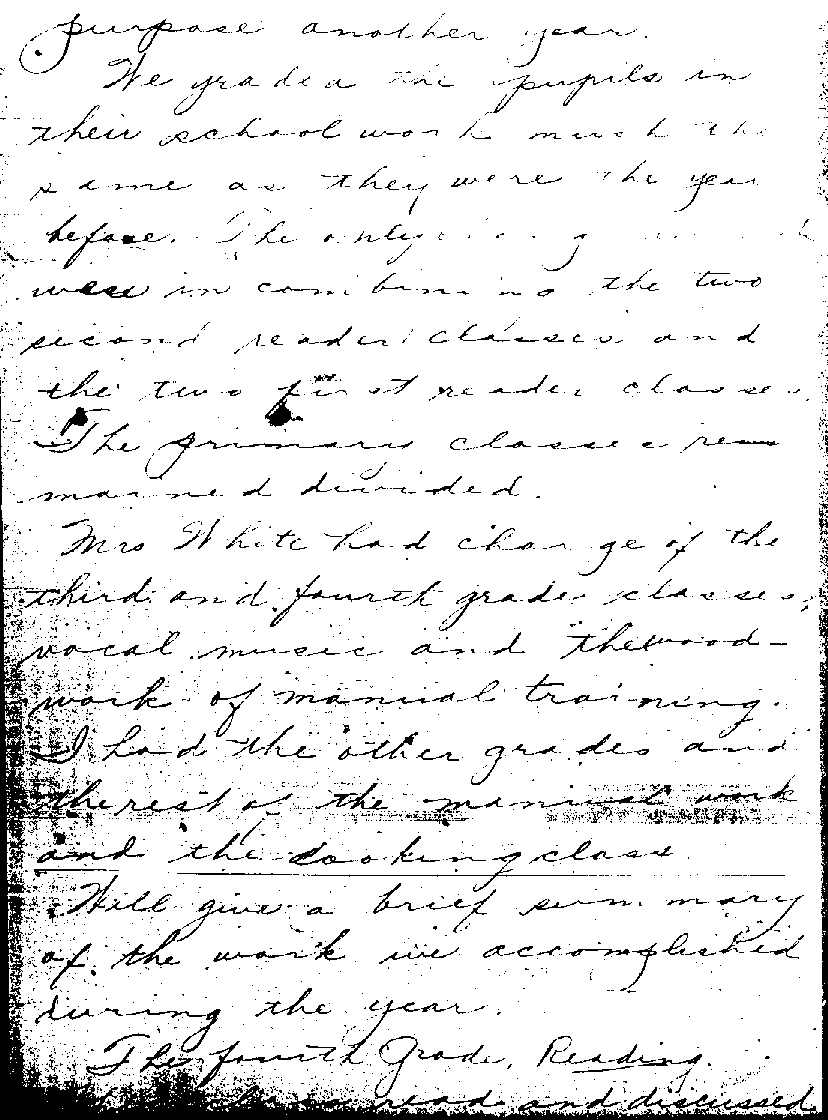 purpose another year.
We graded the pupils in
their school work much the
same as they were the year
before. The only
were in combining the two
second reader classes and
the two first reader classes.
The primary classes re-
mained divided.
Mrs White had charge of the
third and fourth grade classes,
vocal music and the wood-
work of manual training.
I had the other grades and
the rest of the manual work
and the cooking class
Will give a brief summary
of the work we accomplished
during the year.
The fourth Grade, Reading.
read and discussed